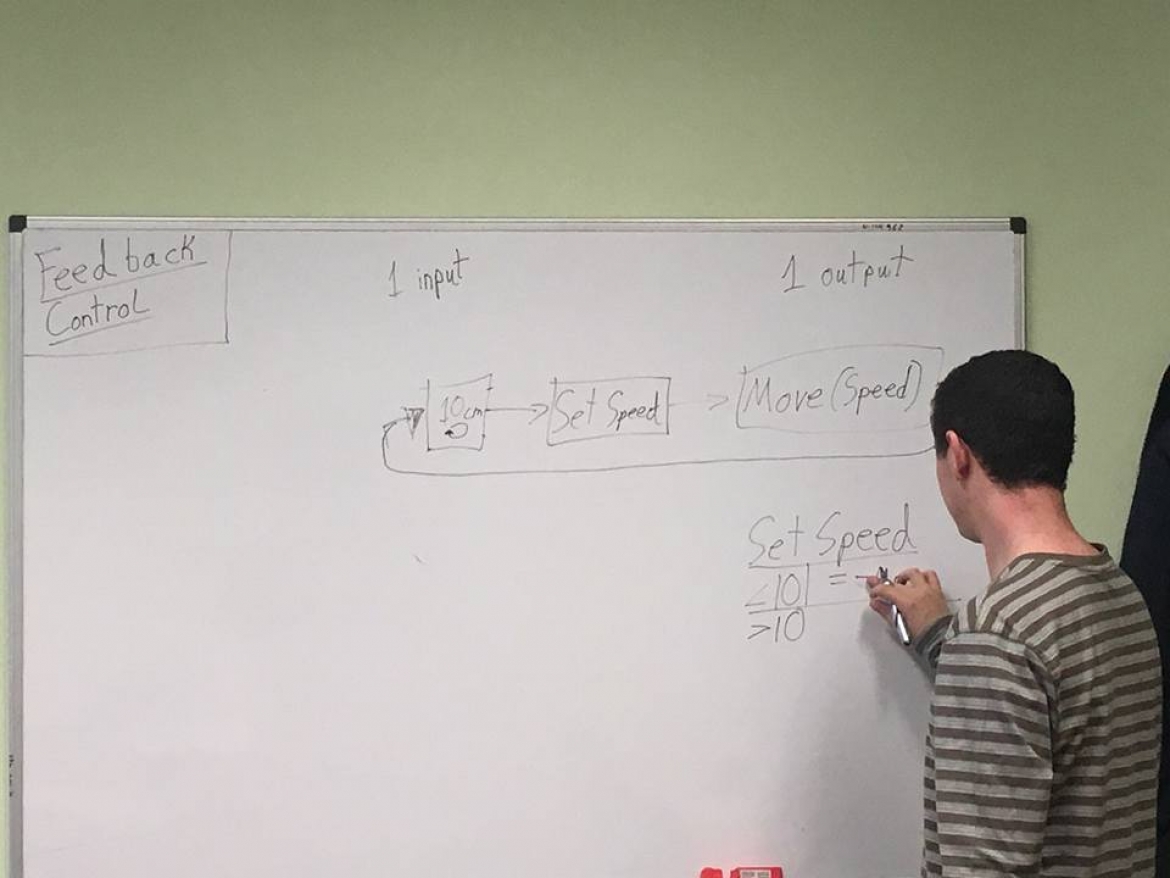 Feedback
Control
1 input
1 output
10cm
Set Speed
Move (Speed)
Set Speed
≤10 = -
>10